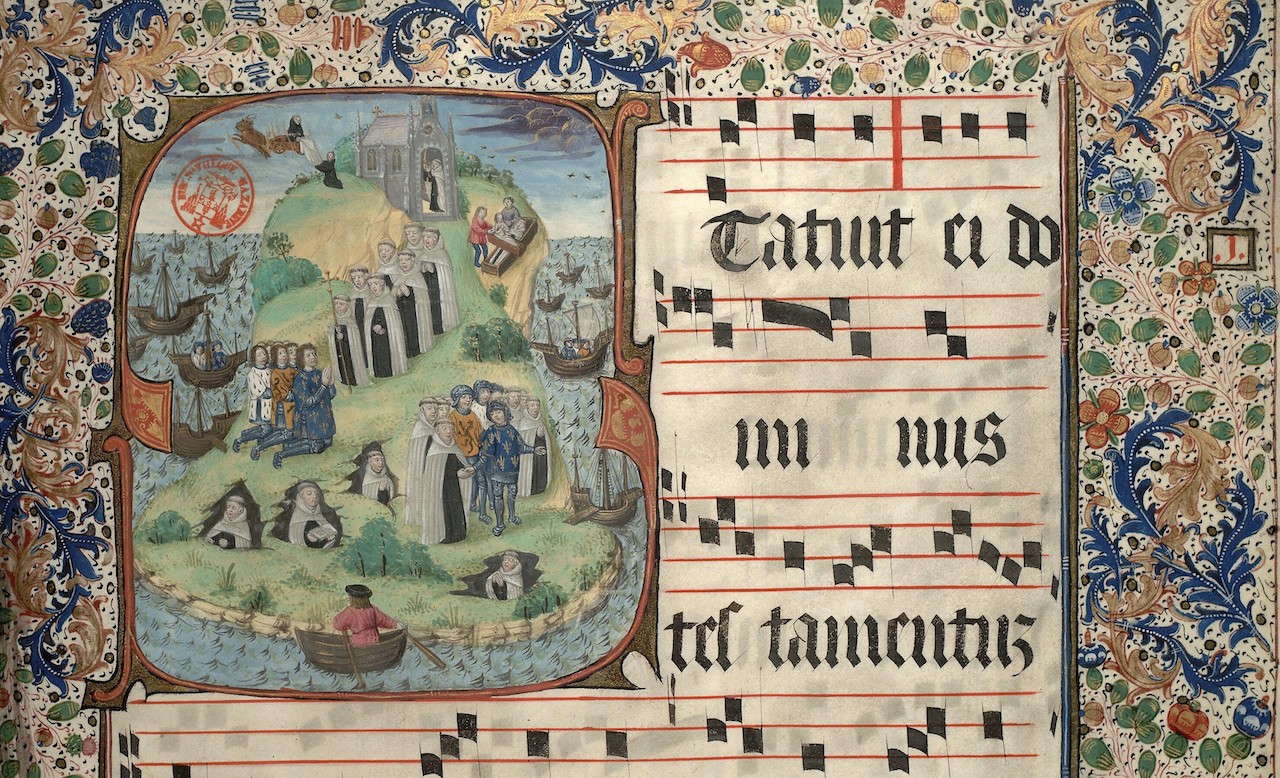 STatuit ei do
.1.
mi nus
tes tamentuz